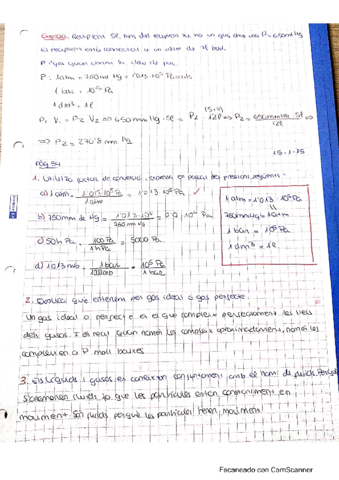 Exercici: Recipient 5l, dins del recipient hi ha un gas amb una P = 650mmHg
El recipient està connectat a un altre de 7l buit.
P gas quan obrim la clau de pas.
P: 1atm = 760mmHg = 1'013·10⁵ Pascals
1 bar = 10⁵ Pa
1 dm³ = 1l
(5+7)
P₁ V₁ = P₂ V₂ ⇔ 650mmHg·5l = P₂ · 12l ⇔ P₂ = 650mmHg·5l / 12l ⇔
⇒ P₂ = 270'8 mm Hg
15-1-15
Pàg 54
1. Utilitza factors de conversió, expressa en pascals les pressions següents
a) 1 atm · 1'013·10⁵ Pa / 1 atm = 1'013·10⁵ Pa
b) 760mm de Hg · 1'013·10⁵ / 760 mm Hg = Pa
c) 50 hPa · 100 Pa / 1 hPa = 5000 Pa
d) 1013 mb · 1 bar · 10⁵ Pa / 1 bar
1 atm = 1'013·10⁵ Pa
760mmHg = 1atm
1 bar = 10⁵ Pa
1 dm³ = 1l
2. Explica que entenem per gas ideal o gas perfecte.
Un gas ideal o perfecte és el que compleix exactament les lleis
dels gasos. Els reals quan només les compleixen aproximadament, només les
compleixen a P molt baixes
3. Els líquids i gasos es coneixen conjuntament amb el nom de fluids. Perquè
S'anomenen fluids ja que les partícules estan contínuament en
moviment. Són fluids perquè les partícules tenen moviment.
Escaneado con CamScanner